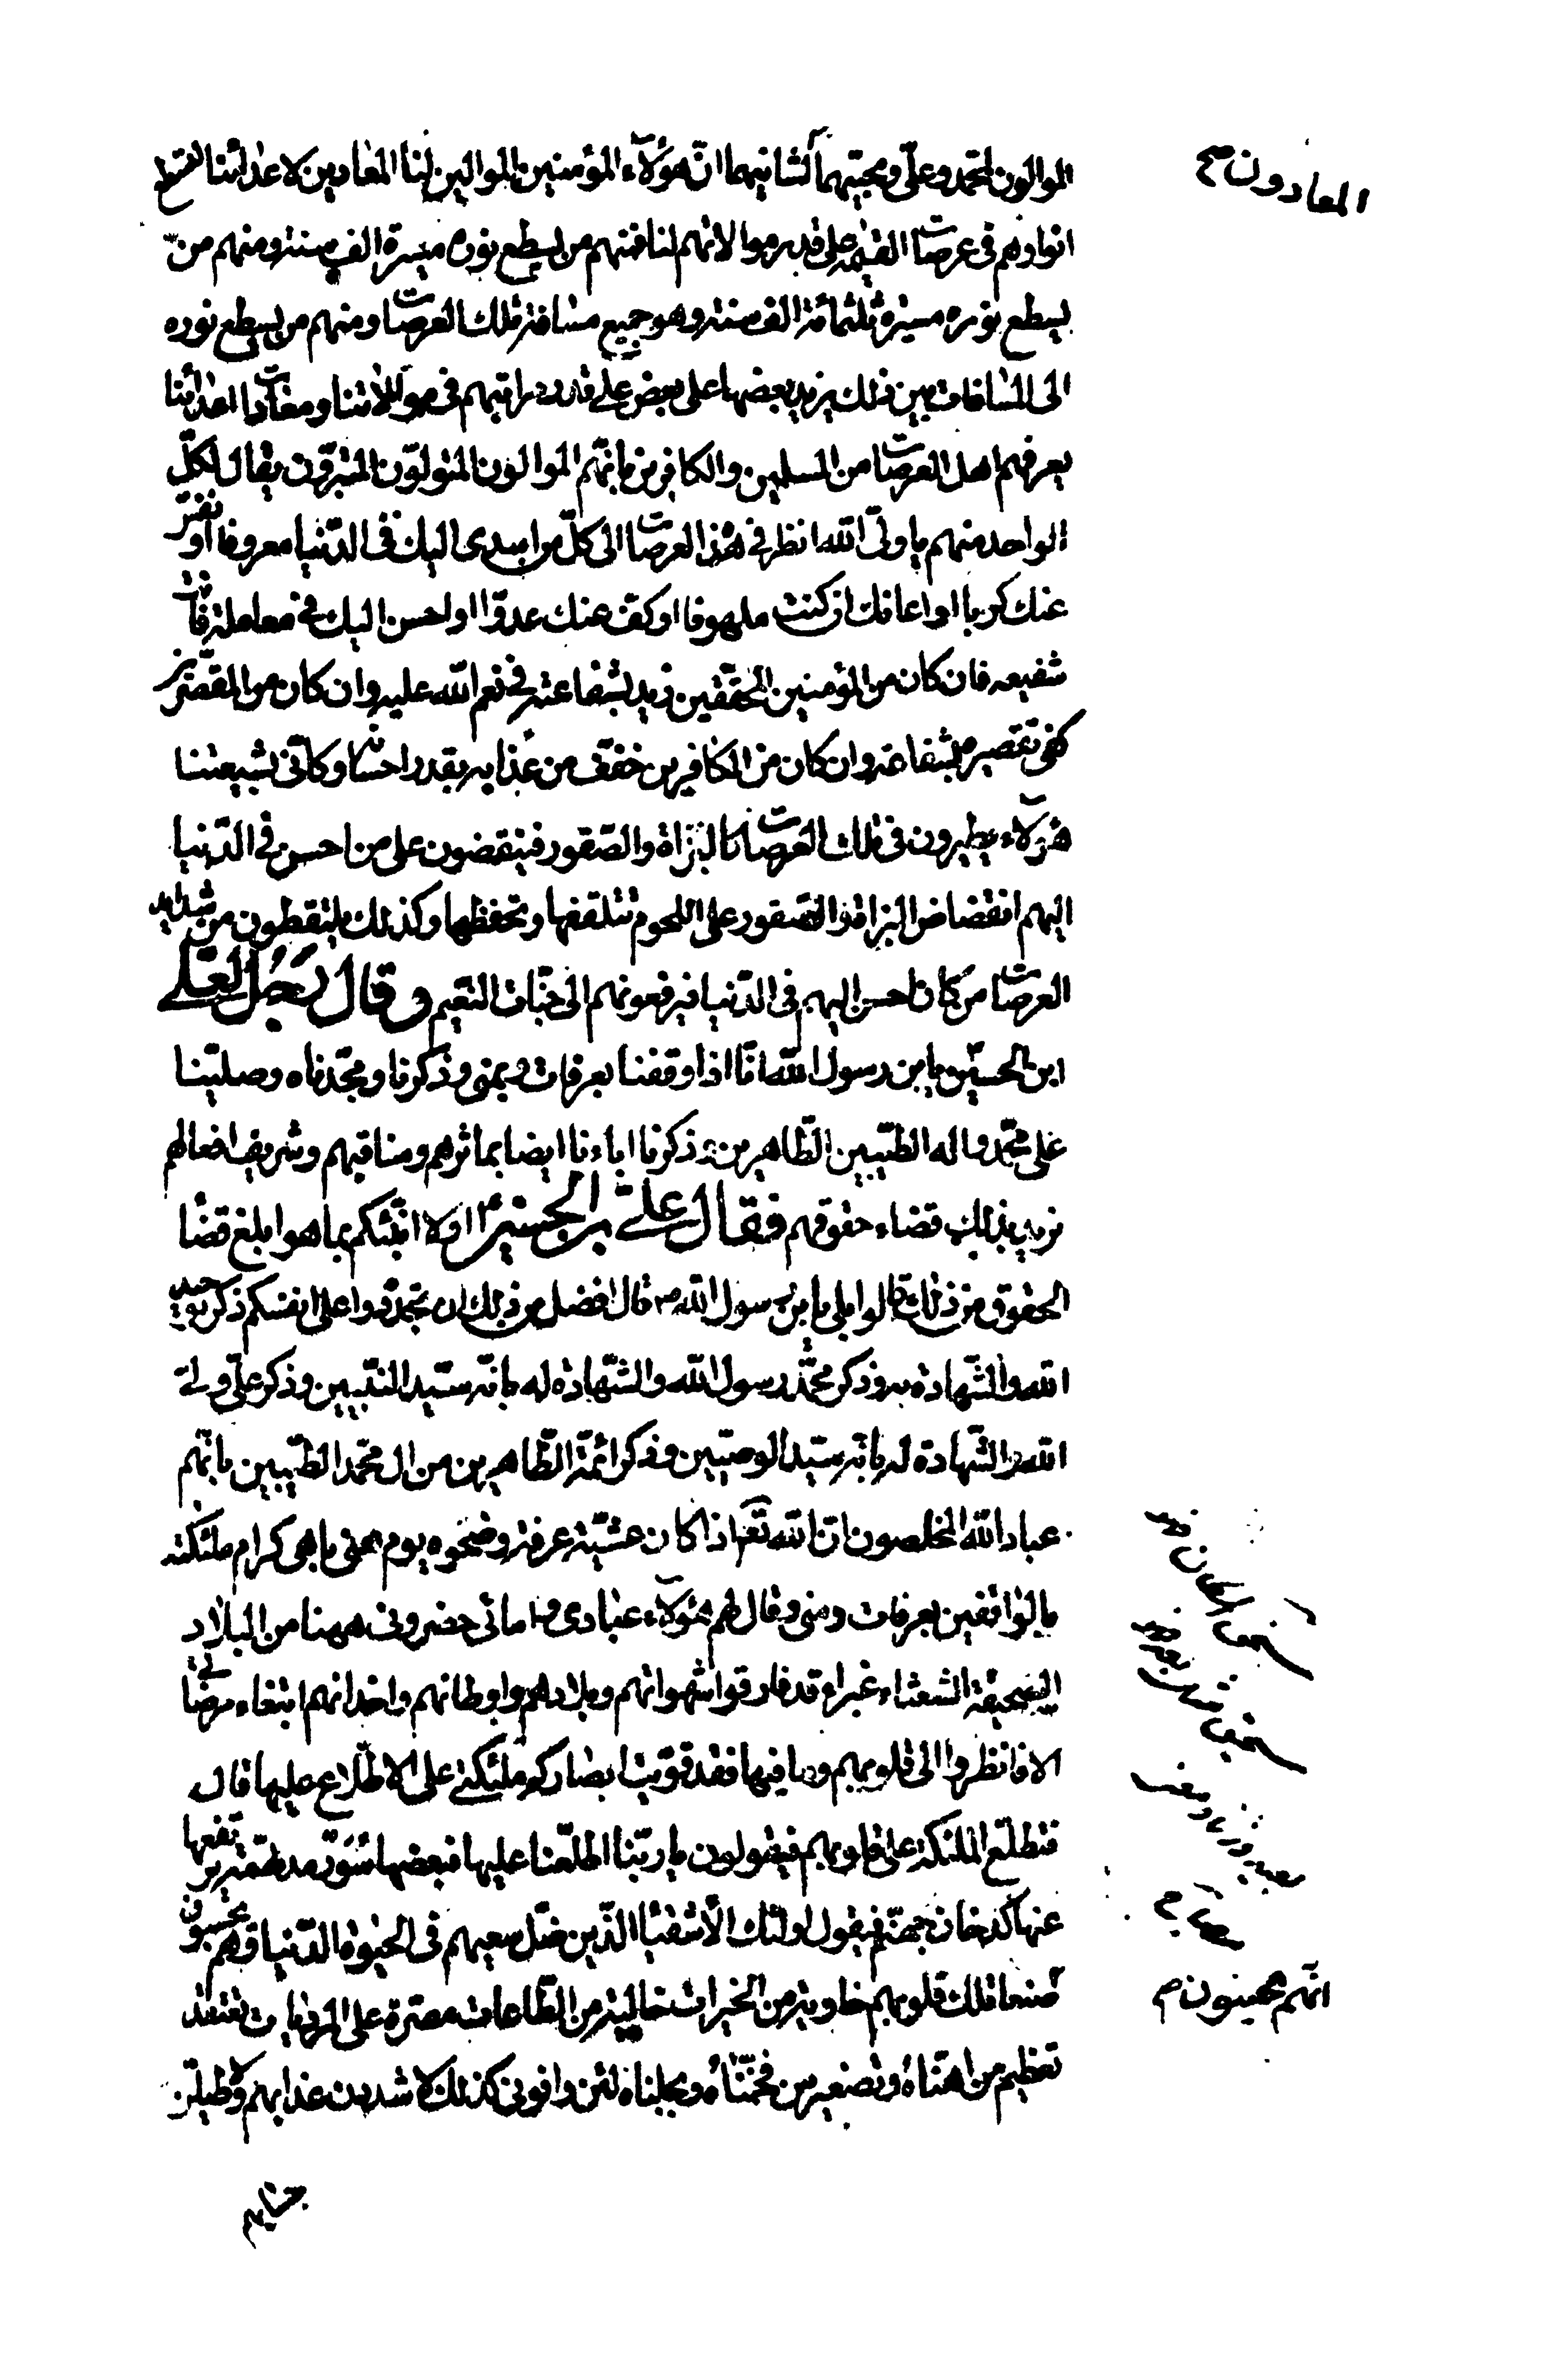 المعادون
الموالون لمحمد وعلي ومحبيهما لشانيهما ان هؤلاء المؤمنين الموالين لنا المعادين لاعدائنا لتسطع
انوارهم في عرصات القيمة على قدر موالاتهم لنا فمنهم من يسطع نوره مسيرة الف سنة ومنهم من
يسطع نوره مسيرة ثلثمائة الف سنة وهو جميع مسافة تلك العرصات ومنهم من يسطع نوره
الى المسافات بين ذلك يزيد بعضها على بعض على قدر مراتبهم في موالاتنا ومعادات اعدائنا
يعرفهم اهل العرصات من المسلمين والكافرين بانهم الموالون المتولون المتبرؤن يقال لكل
الواحد منهم يا ولي الله انظر في هذه العرصات الى كل من اسدى اليك في الدنيا معروفا او نفس
عنك كربا او اعانك اذ كنت ملهوفا او كف عنك عدوا او احسن اليك في معاملة فانت
شفيعه فان كان من المؤمنين المحقين زيد بشفاعته في نعم الله عليه وان كان من المقصرين
كفى تقصيره بشفاعته وان كان من الكافرين خفف من عذابه بقدر احسانه وكاني بشيعتنا
هؤلاء يطيرون في تلك العرصات كالبزاة والصقور فينقضون على من احسن في الدنيا
اليهم انقضاض البزاة والصقور على اللحوم تتلقفها وتحفظها وكذلك يلتقطون من شدايد
العرصات من كان احسن اليهم في الدنيا فيرفعونهم الى جنات النعيم وقال رجل لعلي
ابن الحسين يا بن رسول الله انا اذا وقفنا بعرفات وبمنى وذكرنا ومجدناه وصلينا
على محمد واله الطيبين الطاهرين ذكرنا اباءنا ايضا بماثرهم ومناقبهم وشريف افعالهم
نريد بذلك قضاء حقوقهم فقال علي بن الحسين اولا انبئكم بما هو ابلغ قضا
الحقوق من ذلك قالوا بلى يا بن رسول الله قال افضل من ذلك ان تجددوا على انفسكم ذكر توحيد
الله والشهادة به وذكر محمد رسول الله والشهادة له بانه سيد النبيين وذكر علي ولي
الله والشهادة له بانه سيد الوصيين وذكر ائمة الطاهرين من ال محمد الطيبين بانهم
عباد الله المخلصون ان الله تعم اذا كان عشية عرفة وضحوه يوم منى باهى كرام ملئكته
بالواقفين بعرفات ومنى وقال لهم هؤلاء عبادي وامائي حضروني ههنا من البلاد
السحيقة الشعثاء غبراء قد فارقوا شهواتهم وبلادهم واوطانهم واخدانهم ابتغاء مرضاتي
الا فانظروا الى قلوبهم وما فيها فقد قويت ابصاركم ملئكتي على الاطلاع عليها قال
فتطلع الملئكة على قلوبهم فيقولون يا ربنا اطلعنا عليها فبعضها سود مدلهمة يرتفع
عنها كدخان جهنم فيقول اولئك الاشقيا الذين ضل سعيهم في الحيوة الدنيا وهم يحسبون
انهم يحسنون
صنعا تلك قلوبهم خاوية من الخيرات خالية من الطاعات مصرة على المرديات تعتقد
تعظيم من اهناه وتصغير من فخمناه وبجلناه لئن وافوني كذلك لاشددن عذابهم ولاطيلن
حسابهم